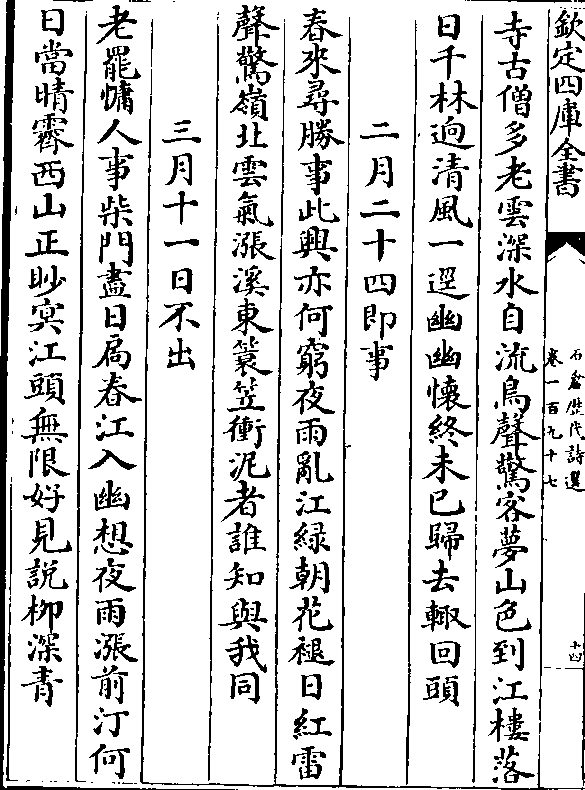 欽定四庫全書
石倉歷代詩選
卷一百九十七
十四
寺古僧多老雲深水自流鳥聲驚客夢山色到江樓落
日千林逈清風一逕幽幽懐終未已歸去輙回頭
二月二十四即事
春來尋勝事此興亦何窮夜雨亂江緑朝花褪日紅雷
聲驚嶺北雲氣漲溪東簑笠衝泥者誰知與我同
三月十一日不出
老罷慵人事柴門盡日扃春江入幽想夜雨漲前汀何
日當晴霽西山正眇冥江頭無限好見説柳深青